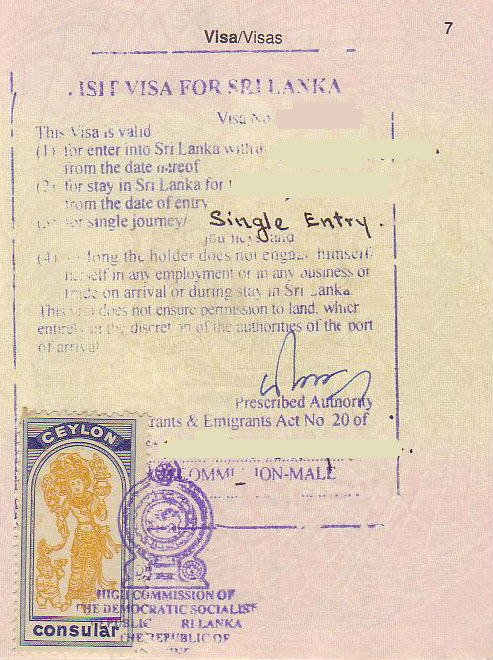 Visa/Visas
7
ISIT VISA FOR SRI LANKA
Visa No
This Visa is valid
(1) for enter into Sri Lanka
from the date hereof
(2) for stay in Sri Lanka for
from the date of entry
for single journey/ Single Entry.
(4) long the holder does not engage himself/
in any employment or in any business or
on arrival or during stay in Sri Lanka
This does not ensure permission to land, which
in the of the authorities of the port
of arrival
Prescribed Authority
rants & Emigrants Act No 20 of
CEYLON
COMMI ION-MALE
HIGH COMMISSION OF
THE DEMOCRATIC SOCIALIST
RI LANKA
consular
THE REPUBLIC OF